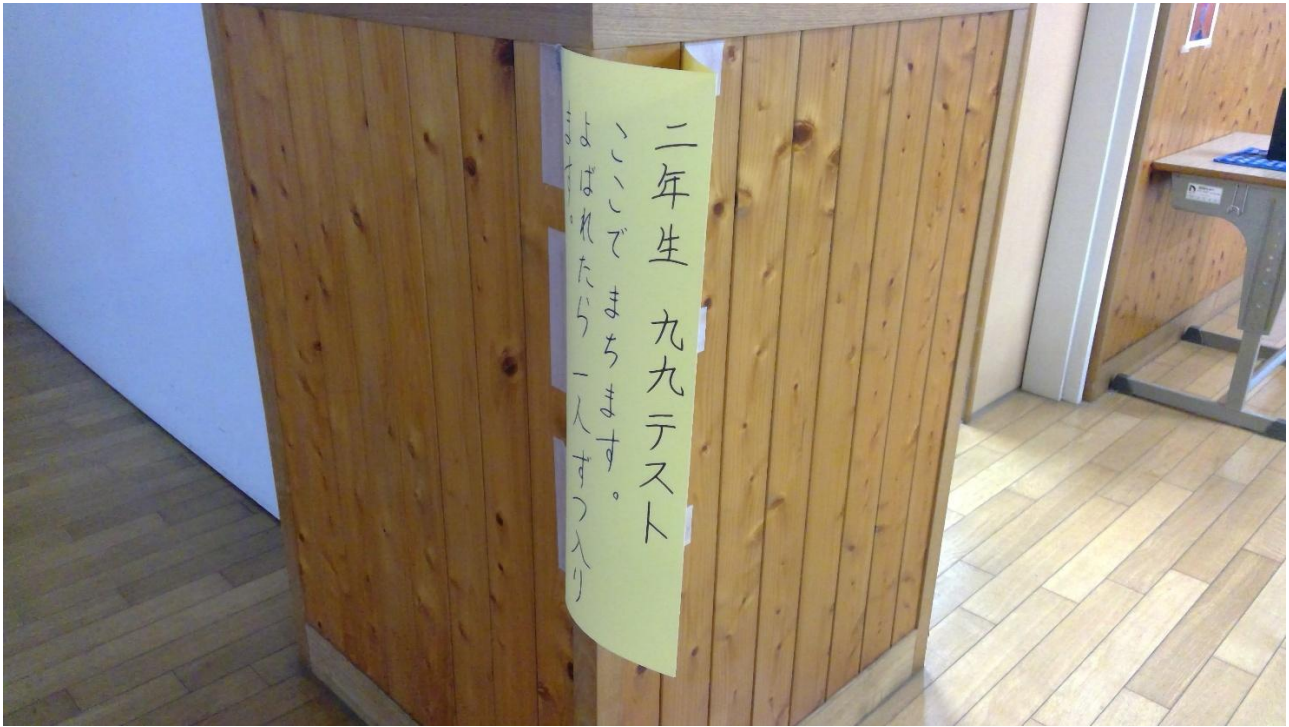 二年生 九九テスト
ここでまちます。
よばれたら 一人ずつ入り
ます。